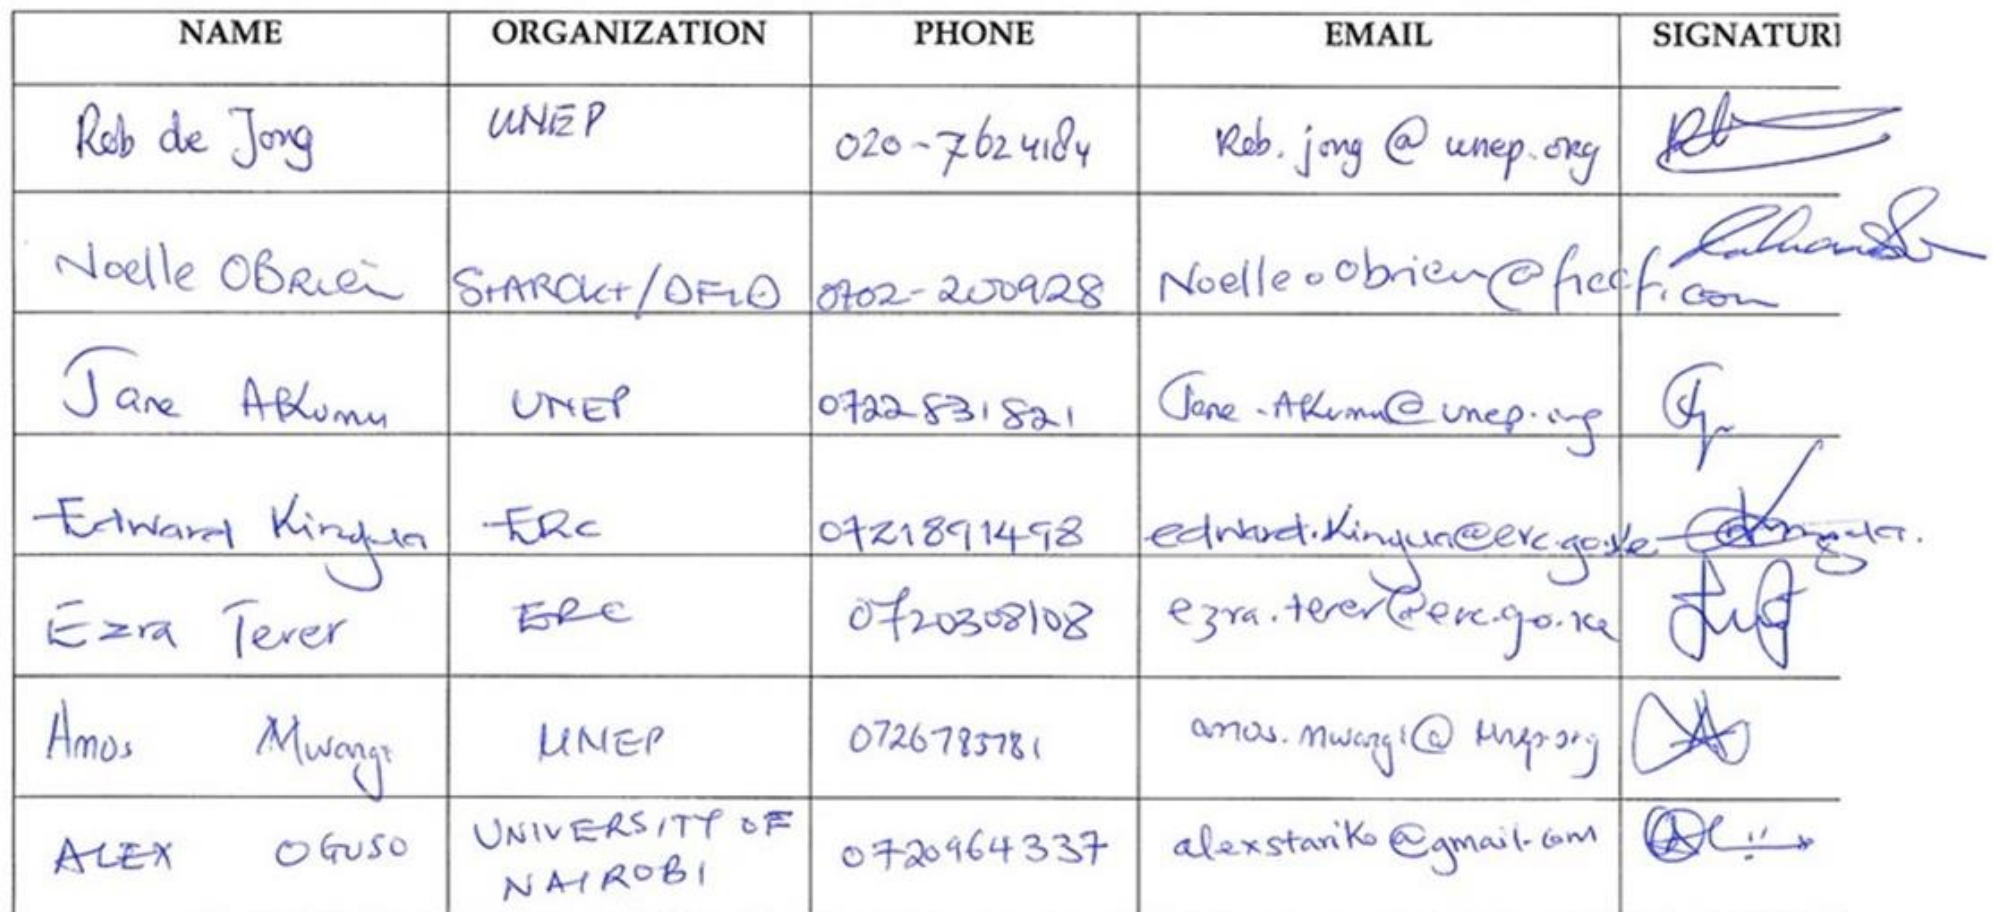 NAME ORGANIZATION PHONE EMAIL SIGNATURE
Rob de Jong UNEP 020-7624184 Rob.jong@unep.org
Noelle OBrien StARCK+/DFID 0702-200928 Noelle.obrien@ficcf.com
Jane Akumu UNEP 0722831821 Jane.Akumu@unep.org
Edward Kinyua ERC 0721891498 edward.kinyua@erc.go.ke
Ezra Terer ERC 0720308108 ezra.terer@erc.go.ke
Amos Mwangi UNEP 0726785781 amos.mwangi@unep.org
ALEX OGUSO UNIVERSITY OF NAIROBI 0720964337 alexstariko@gmail.com